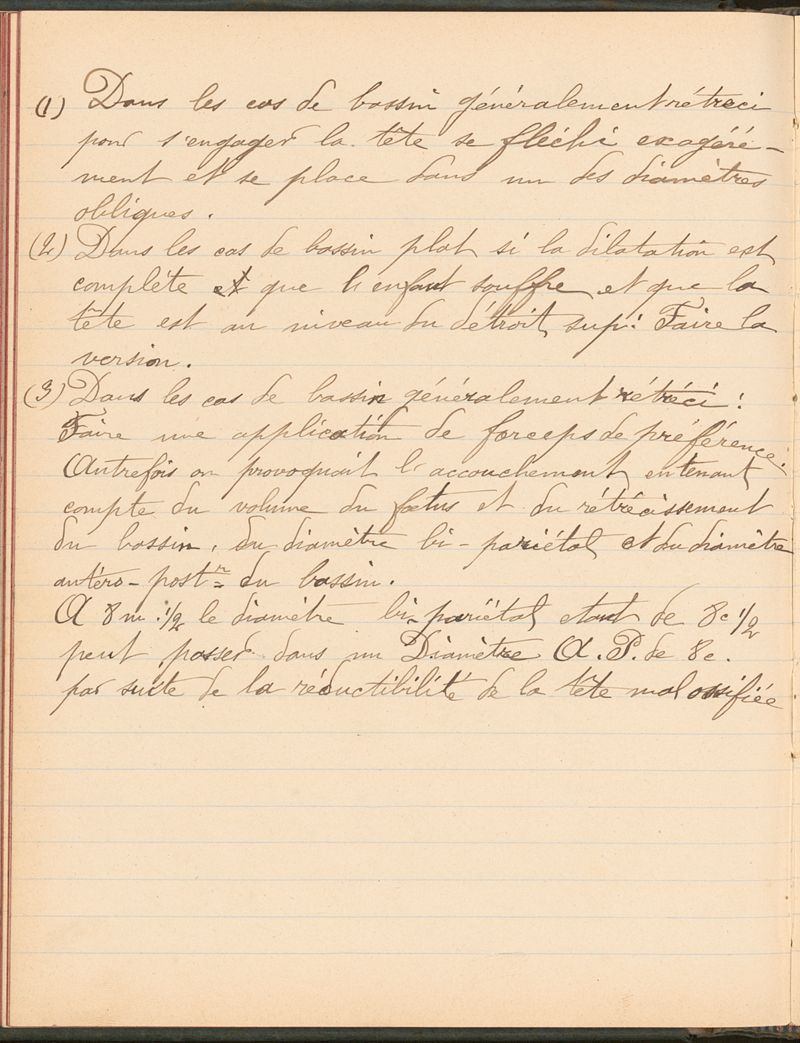 (1) Dans les cas de bassin généralement rétréci
pour s'engager la tête se fléchi exagéré-
ment et se place dans un des diamètres
obliques.
(2) Dans les cas de bassin plat si la dilatation est
complète et que l'enfant souffre et que la
tête est au niveau du détroit sup: Faire la
version.
(3) Dans les cas de bassin généralement rétréci:
Faire une application de forceps de préférence.
Autrefois on provoquait l'accouchement en tenant
compte du volume du fœtus et du rétrécissement
du bassin, du diamètre bi-pariétal et du diamètre
antéro-postr du bassin.
A 8 m. 1/2 le diamètre bi-pariétal étant de 8c 1/2
peut passer dans un Diamètre A.P. de 8c.
par suite de la réductibilité de la tête mal ossifiée